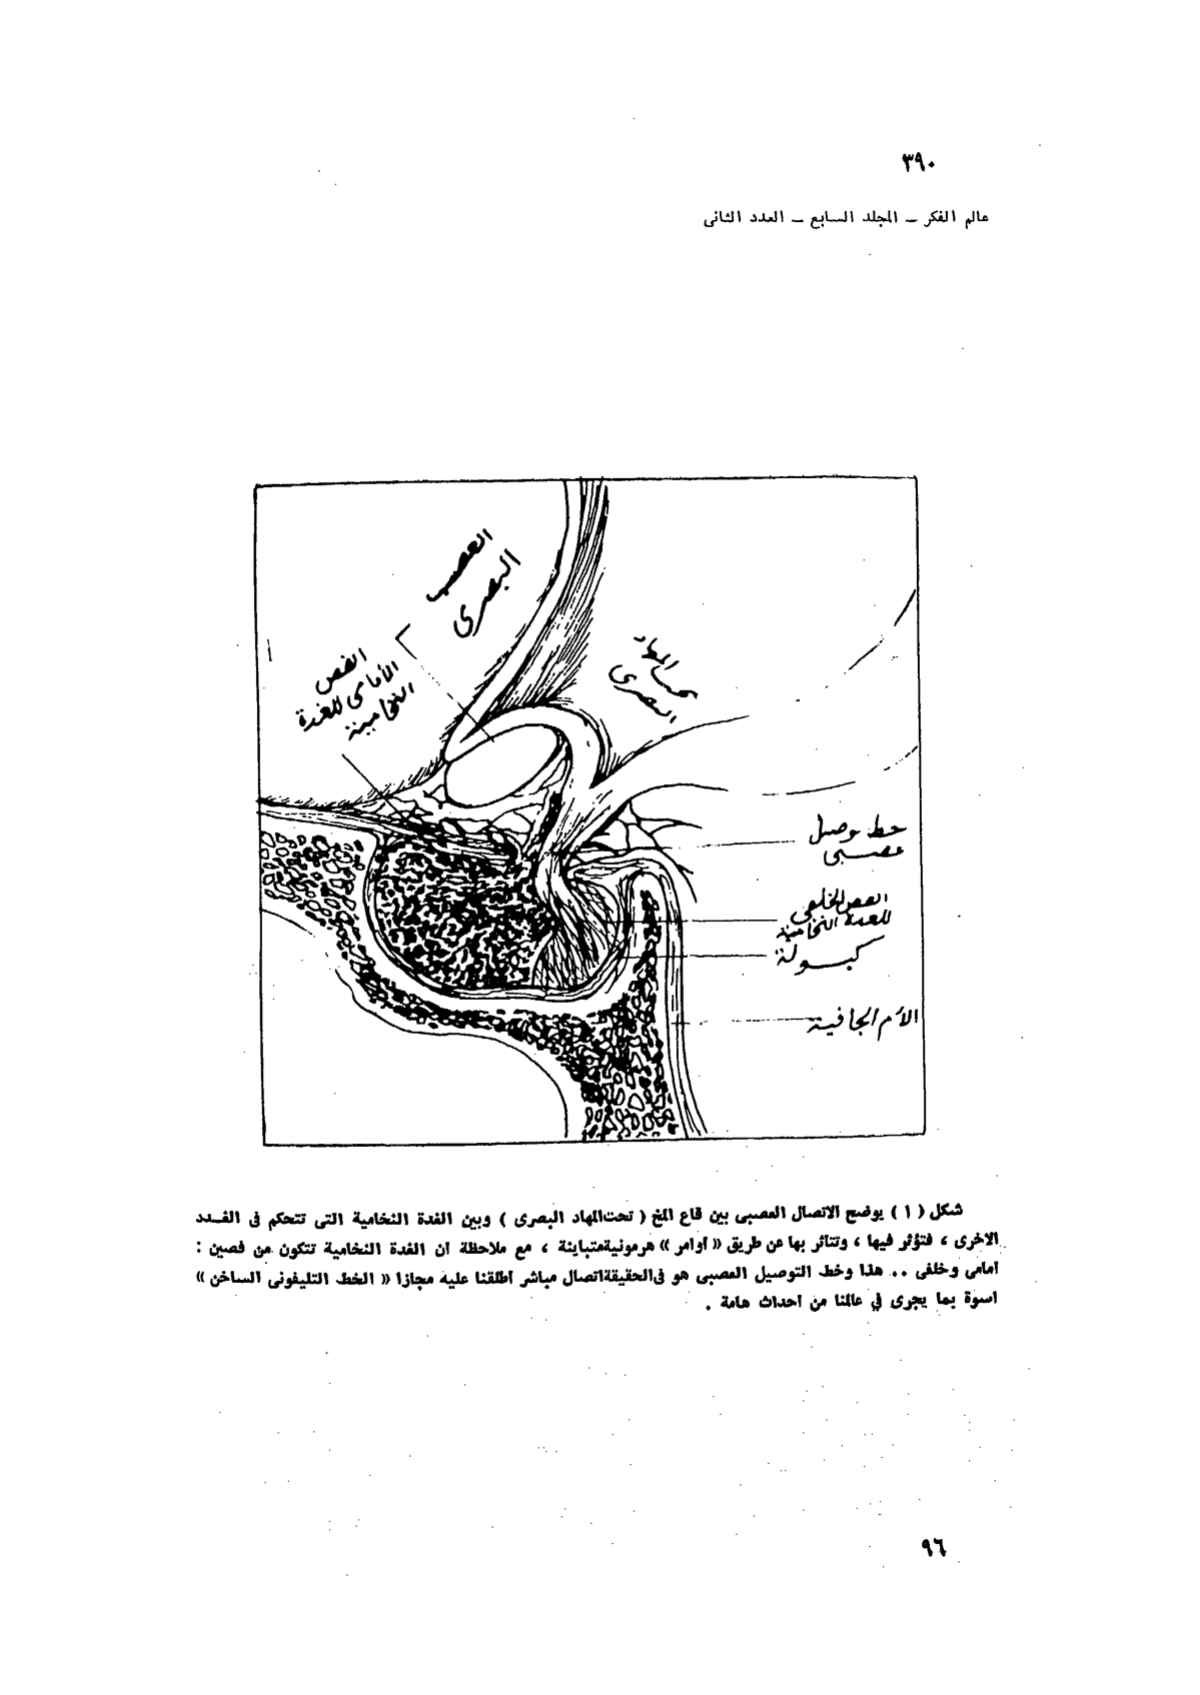 ٣٩٠
عالم الفكر ــ المجلد السابع ــ العدد الثانى
العصب
البصرى
الفص
الأمامى للغدة
النخامية
تحت المهاد
البصرى
خط توصيل
عصبى
الفص الخلفى
للغدة النخامية
كبسولة
الأم الجافية
شكل ( ١ ) يوضح الاتصال العصبى بين قاع المخ ( تحت المهاد البصرى ) وبين الغدة النخامية التى تتحكم فى الغــدد
الاخرى ، فتؤثر فيها ، وتتاثر بها عن طريق « أوامر » هرمونية متباينة ، مع ملاحظة ان الغدة النخامية تتكون من فصين :
امامى وخلفى .. هذا وخط التوصيل العصبى هو فى الحقيقة اتصال مباشر اطلقنا عليه مجازا « الخط التليفونى الساخن »
اسوة بما يجرى في عالمنا من احداث هامة .
٩٦